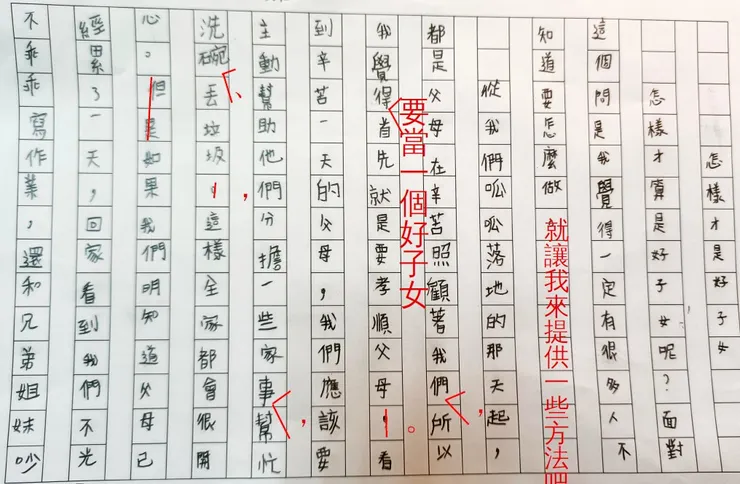 怎樣才是好子女
怎樣才算是好子女呢?面對
這個問是我覺得一定有很多人不
知道要怎麼做
就讓我來提供一些方法吧
從我們呱呱落地的那天起,
都是父母在辛苦照顧著我們所以
,
要當一個好子女
我覺得首先就是要孝順父母,看
。
到辛苦一天的父母,我們應該要
主動幫助他們分擔一些家事幫忙
,
洗碗丟垃圾。這樣全家都會很開
、
,
心。但是如果我們明知道父母已
經累了一天,回家看到我們不光
不乖乖寫作業,還和兄弟姐妹吵